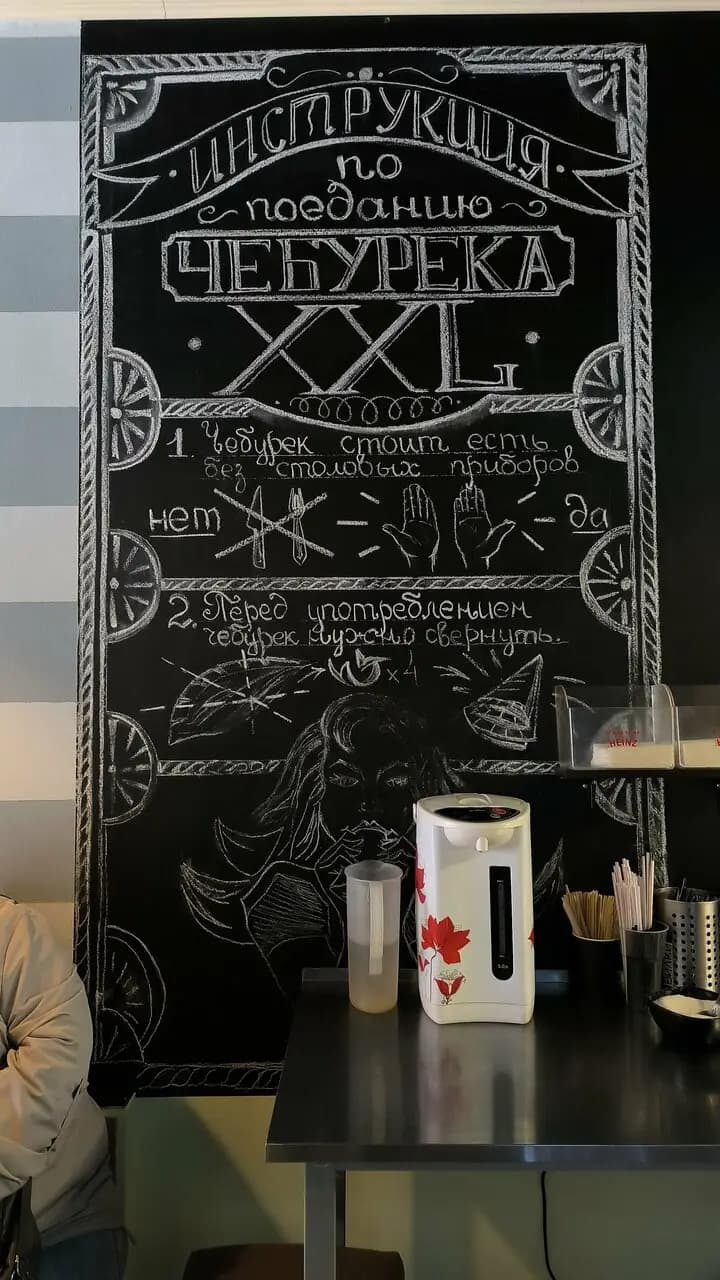 ИНСТРУКЦИЯ
по
поеданию
ЧЕБУРЕКА
XXL
1. Чебурек стоит есть
без столовых приборов
нет
да
2. Перед употреблением
чебурек нужно свернуть.
x4
HEINZ